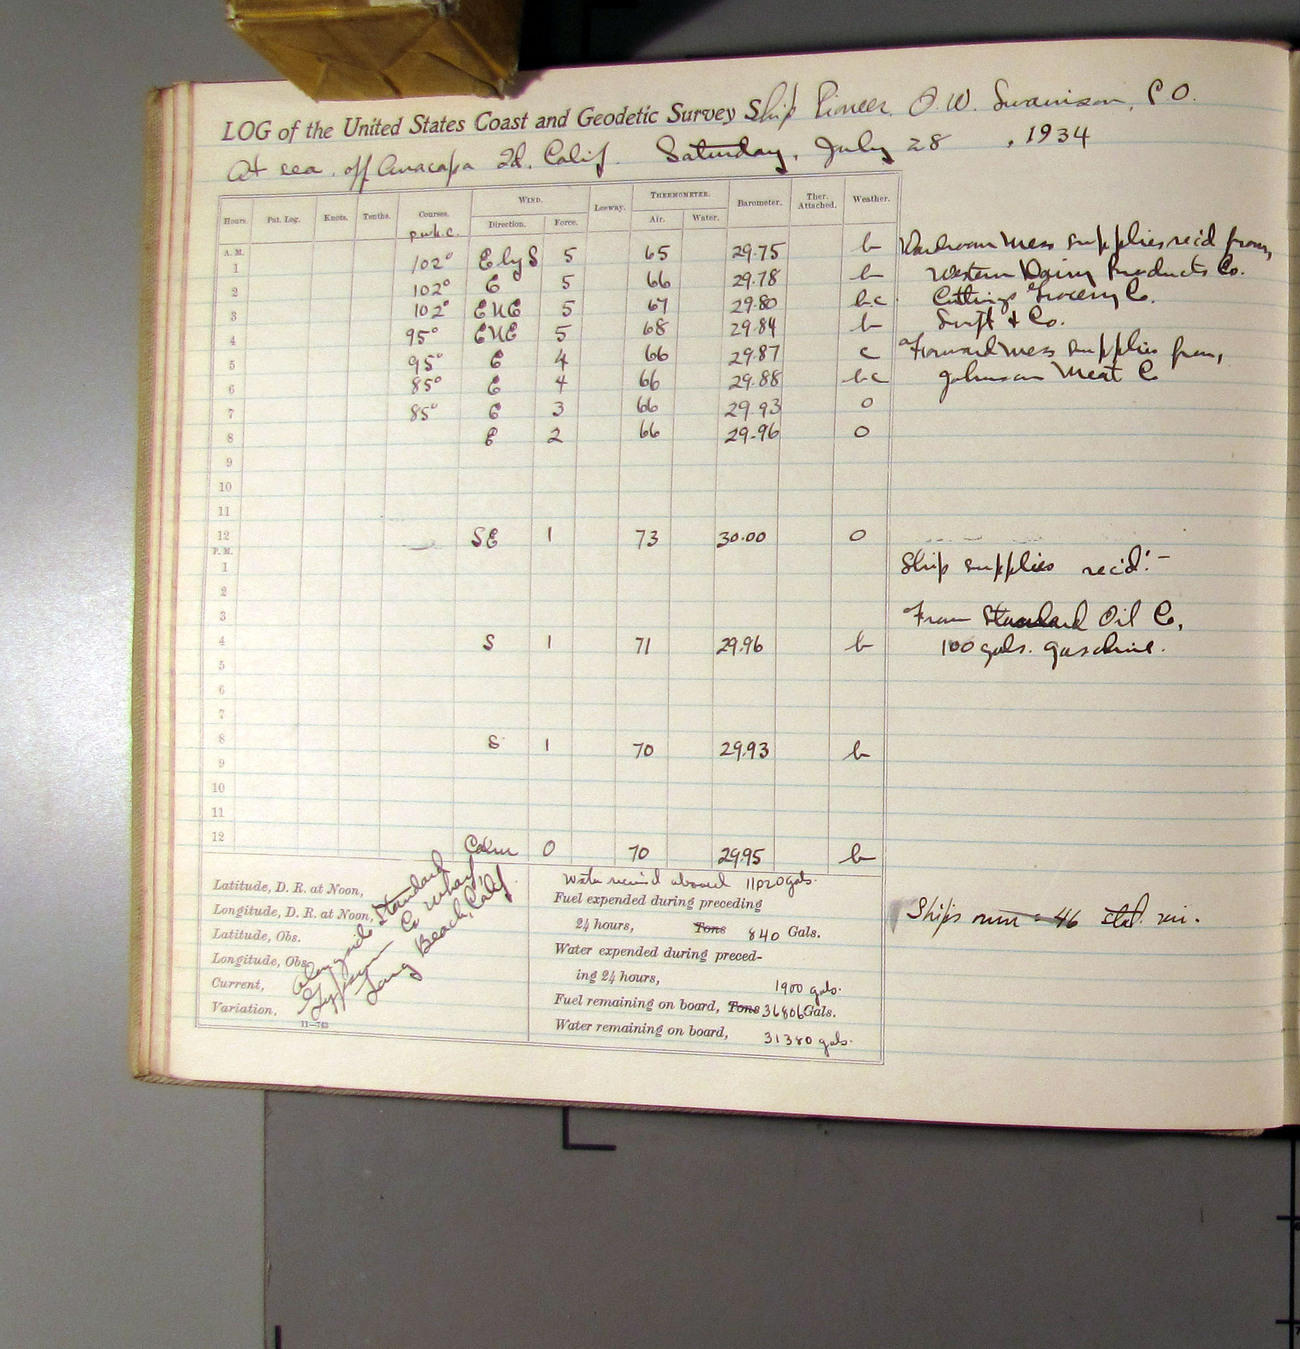 LOG of the United States Coast and Geodetic Survey Ship Pioneer, O. W. Swainson, C O.
At sea, off Anacapa Id. Calif. Saturday, July 28, 1934
Hours. Pat. Log. Knots. Tenths. Courses. p.w.k.c. WIND. Direction. Force. Leeway. THERMOMETER. Air. Water. Barometer. Ther. Attached. Weather.
A. M.
1 102° E by S 5 65 29.75 b Wardroom mess supplies rec'd from,
2 102° E 5 66 29.78 b Western Dairy Products Co.
3 102° ENE 5 67 29.80 b.c Cuttings Grocery Co.
4 95° ENE 5 68 29.84 b Swift & Co.
5 95° E 4 66 29.87 c Forward mess supplies from,
6 85° E 4 66 29.88 bc Johnson Meat Co
7 85° E 3 66 29.93 o
8 E 2 66 29.96 o
9
10
11
12 SE 1 73 30.00 o
P. M.
1 Ship supplies rec'd:-
2
3 From Standard Oil Co,
4 S 1 71 29.96 b 100 gals. gasoline.
5
6
7
8 S 1 70 29.93 b
9
10
11
12 Calm 0 70 29.95 b
Latitude, D. R. at Noon,
Longitude, D. R. at Noon,
Latitude, Obs.
Longitude, Obs.
Current,
Variation,
11—763
Alongside Standard
Gypsum Co Wharf,
Long Beach, Calif
Water received aboard 11020 gals.
Fuel expended during preceding
24 hours, Tons 840 Gals.
Water expended during preced-
ing 24 hours, 1900 gals.
Fuel remaining on board, Tons 36806 Gals.
Water remaining on board, 31380 gals.
Ships run = 46 stat. mi.